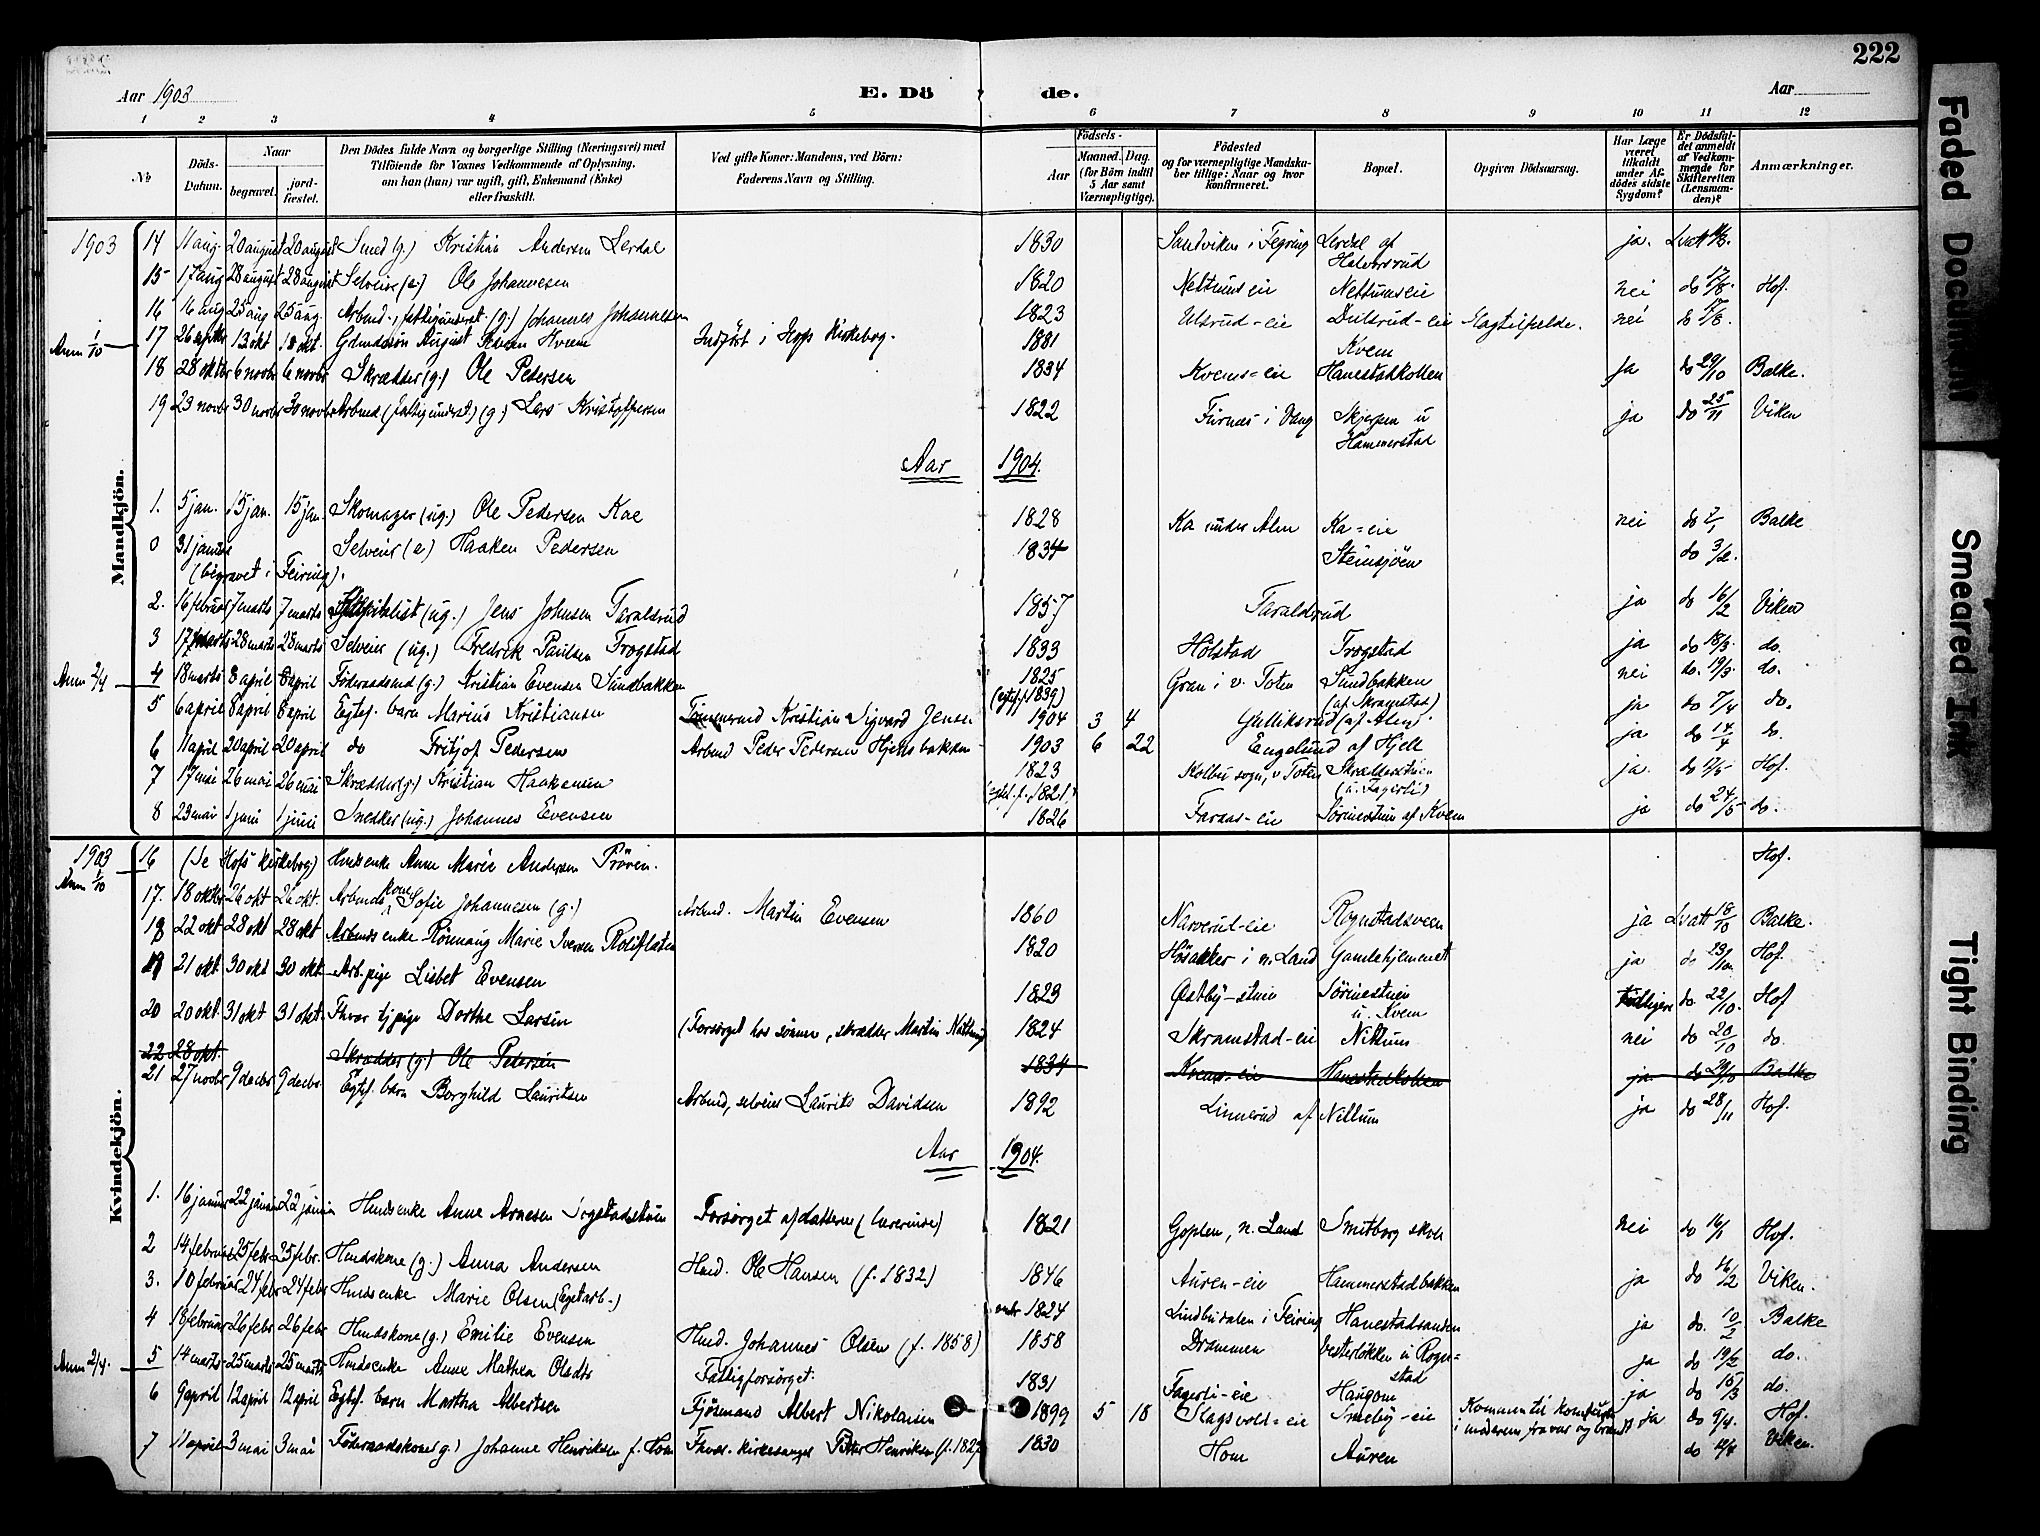 222
Aar 1903
E. Dö de.
Aar
1 2 3 4 5 6 7 8 9 10 11 12
No
Döds-Datum.
Naar
begravet.
jord-fæstet.
Den Dödes fulde Navn og borgerlige Stilling (Næringsvei) med
Tilföiende for Voxnes Vedkommende af Oplysning,
om han (hun) var ugift, gift, Enkemand (Enke)
eller fraskilt.
Ved gifte Koner: Mandens, ved Börn:
Faderens Navn og Stilling.
Födsels-
Aar
Maaned. Dag.
(for Börn indtil
5 Aar samt
Værnepligtige).
Födested
og for værnepligtige Mandska-
ber tillige: Naar og hvor
konfirmeret.
Bopæl.
Opgiven Dödsaarsag.
Har Læge
været
tilkaldt
under Af-
dödes sidste
Sygdom?
Er Dödsfal-
det anmeldt
af Vedkom-
mende for
Skifteretten
(Lensman-
den)?
Anmærkninger.
Mandkjön.
1903 14 11 aug 20 august 20 august Smed (g.) Kristian Andersen Lerdal 1830 Sandviken i Fegring Lerdal af Halvorsrud ja. Lvatt
15 17 aug 28 august 28 august Selveier (e.) Ole Johannesen 1820 Nettumseie Nettumseie nei do 17/8. Hof.
16 16 aug 25 aug 25 aug. Arbmd., fattigunderst. (g.) Johannes Johannesen 1823 Ulsrud-eie Dulsrud-eie Slagtilfælde. nei do 17/8.
Anm 1/10 17 26 septbr 13 okt 18 okt. Gdmdssön August Hveem 1881 Kvem
Indfört i Hofs Kirkebog.
18 28 oktbr 6 novbr 6 novbr Skrædder (g.) Ole Pedersen 1834 Kvems-eie Hanestadkollen ja do 29/10 Balke.
19 23 novbr 30 novbr 30 novbr Arbmd (fattigunderst.) (g.) Lars Kristoffersen 1822 Furnes i Vang Skjepsen u Hammerstad ja do 25/11 Viken
Aar 1904.
1. 5 jan. 15 jan. 15 jan. Skomager (ug.) Ole Pedersen Kae 1828 Ka under Alm Ka-eie nei do 7/1 Balke
0 31 januar Selveier (e) Haaken Pedersen 1834 Steinsjöen do 3/2.
(begravet i Feiring).
2. 16 februar 7 marts 7 marts (ug.) Jens Johnsen Taraldsrud 1857 Taraldsrud ja do 16/2 Viken
3 17 marts 28 marts 28 marts Selveier (ug.) Fredrik Paulsen Trogstad 1833 Holstad Trogstad ja do 18/3. do.
Anm 2/4 4 18 marts 8 april 8 april Föderaadsmd (g.) Kristian Evensen Sundbakken 1825 Gran i v. Toten Sundbakken (af Skramstad) nei do. 19/3. do.
(egtef. f. 1839)
5 6 april 8 april 8 april Egtef. barn Marius Kristiansen Tömmermd Kristian Sigvard Jensen 1904 3 4 Gulliksrud (af Alm). ja do 7/4 do.
6 11 april 20 april 20 april do Fritjof Pedersen Arbmd Peder Pedersen Hjellsbakken 1903 6 22 Engelund af Hjell ja do 14/4 do.
7 17 mai 26 mai 26 mai Skrædder (g.) Kristian Haakensen 1823 Kolbu sogn, v Toten Skrædderstuen (u. Fagerli) ja. do Hof.
(egtef. f. 1821.)
8 23 mai 1 juni 1 juni Snedker (ug.) Johannes Evensen 1826 Faraas-eie Sörinestuen af Kvem ja do 24/5 do.
Kvindekjön.
1903 Anm 1/10 16 (Se Hofs Kirkebog) Hmdsenke Anne Marie Andersen Pröven. Hof.
17. 18 oktbr 26 okt 26 okt. Arbmds kone Sofie Johannesen (g.) Arbmd. Martin Evensen 1860 Narverud-eie Rognstadsveen ja Lvatt 18/10 Balke.
18 22 okt 28 okt 28 okt Arbmds enke Rönnaug Marie Iversen Roliflaten 1820 Hösakker i n. Land Gamlehjemmet ja do 23/10. Hof.
19 21 okt. 30 okt 30 okt. Arb.pige Lisbet Evensen 1823 Östby-stuen Sörinestuen u. Kvem tidligere do 22/10. Hof
20 20 okt. 31 okt 31 okt. Fhvr. tj.pige Dorthe Larsen (Forsörget hos sönnen, skrædder Martin Nettum) 1824 Skramstad-eie Nettum nei do 20/10 do.
22 28 okt. Skrædder (g.) Ole Pedersen 1834 Kvems-eie Hanestadkollen ja do 29/10 Balke
21 27 novbr 9 decbr 9 decbr. Egtef. barn Borghild Lauritsen Arbmd, selveier Laurits Davidsen 1892 Linnerud af Nettum ja do 28/11 Hof.
Aar 1904.
1. 16 januar 22 januar 22 januar Hmdsenke Anne Arnesen Forsörget af datteren (lærerinde) 1821 Goplen, n. Land Smutborg skole nei do 16/1 Hof.
2 14 februar 25 febr 25 febr. Hmdskone (g.) Anna Andersen Hmd. Ole Hansen (f. 1832) 1846 Auren-eie Hammerstadbakken ja do 16/2 Viken.
3. 10 februar 24 febr 24 febr Hmdsenke Marie Olsen (Egetarb.) 1824 Lindbudalen i Feiring Hanestadsanden ja do. 10/2 Balke
4 18 februar 26 febr 26 febr Hmdskone (g.) Emilie Evensen Hmd. Johannes Olsen (f. 1858) 1858 Drammen Vesterlökken u Rognstad ja do 19/2 do.
Anm 2/4. 5 14 marts 25 marts 25 marts Hmdsenke Anne Mathea Olsdtr Fattigforsörget. 1831 Fagerli-eie Haugom ja do 15/3 do.
6 9 april 12 april 12 april Egtef. barn Martha Albertsen Fjösmand Albert Nikolaisen 1899 5 18 Slagsvold-eie Smeby-eie Kommen til komfuren i moderens fravær og brændt ja do 9/4. Hof.
7 11 april 3 mai 3 mai Föderaadskone (g.) Johanne Henriksen f. Hom Fhvr. kirkesanger Peter Henriksen (f. 1827) 1830 Hom Auren do 12/4 Viken.
Faded Document
Smeared Ink
Tight Binding